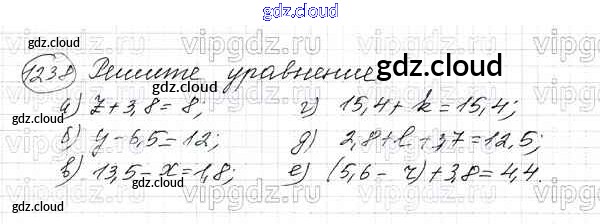 gdz.cloud
gdz.cloud gdz.cloud
vipgdz.ru vipgdz.ru vipgdz.ru
1238 Решите уравнение
gdz.cloud
а) z + 3,8 = 8; г) 15,4 + k = 15,4;
vipgdz.ru vipgdz.ru vipgdz.ru
б) y - 6,5 = 12; д) 2,8 + l + 3,7 = 12,5;
в) 13,5 - x = 1,8; е) (5,6 - r) + 3,8 = 4,4.
vipgdz.ru vipgdz.ru vipgdz.ru
gdz.cloud gdz.cloud